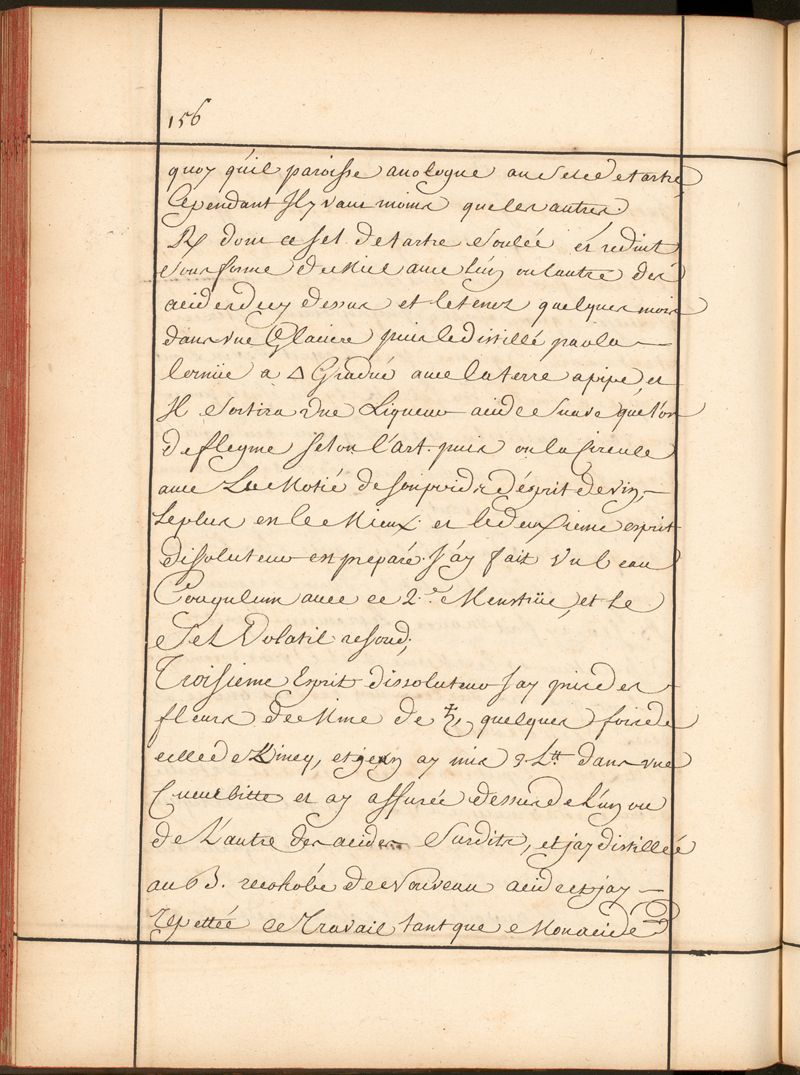 156
quoy qu'il paroisse anologue au sel de tartre,
Cependant Il y vaut moins que les autres.
R/ donc ce sel de tartre soulée et reduit
sous forme de Miel avec L'un ou l'autre des
acides d'cy dessus et le tenez quelques mois
dans une Glaciere puis le distillé par la
Cornüe a △ Gradué avec la terre a pipe, et
Il sortira une Liqueur acide suave que l'on
defleyme selon l'art. puis on la Circule
avec La Motié de son poids d'esprit de vin,
Le plus est le Mieux. et le deuxieme esprit
dissoluteur est preparé. J'ay fait un beau
Coagulum avec ce 2.e Menstrüe, et Le
Sel Volatil resoud;
Troisieme Esprit dissoluteur J'ay pris des
fleurs de Mine de ♄, quelques fois de
celle de Zincq, et j'en ay mis 2 L.tt dans une
Cucurbitte et ay assurée dessus de L'un ou
de L'autre des acides Susdits, et j'ay distilléé
au B. recohobé de Nouveau acide et j'ay
repettéé ce Travail tant que Mon acide